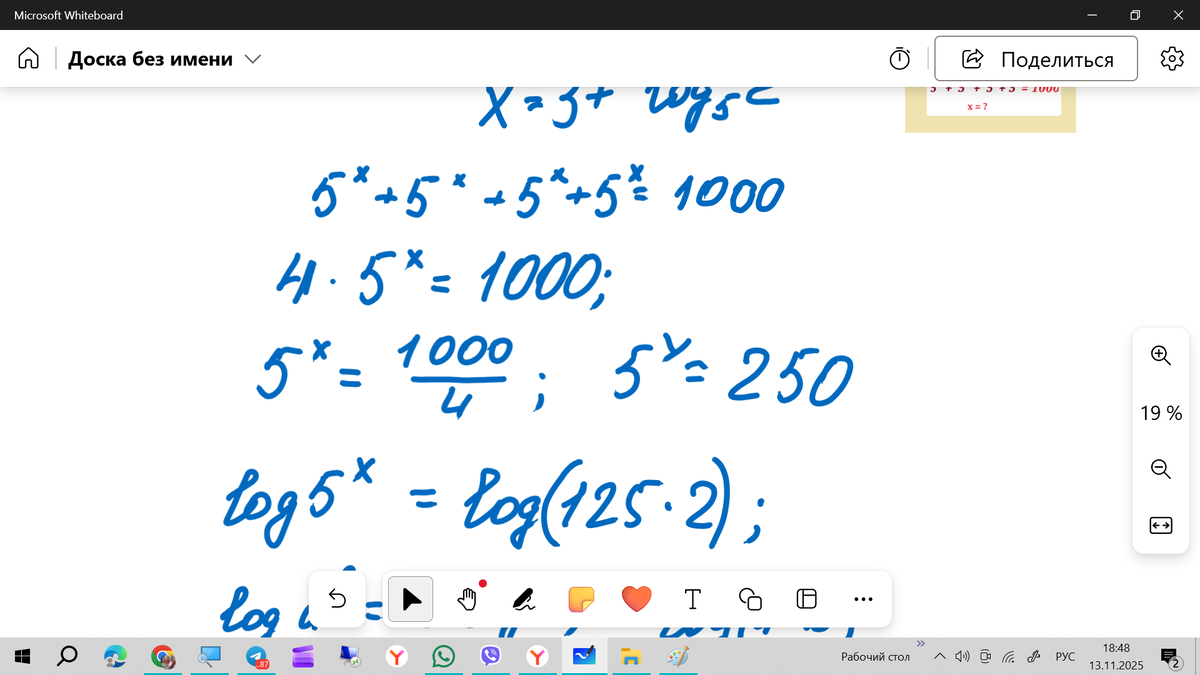 Microsoft Whiteboard
Доска без имени
Поделиться
x = ?
x = 3 + log₅2
5ˣ + 5ˣ + 5ˣ + 5ˣ = 1000
4 · 5ˣ = 1000;
5ˣ = 1000/4 ; 5ˣ = 250
log 5ˣ = log(125 · 2) ;
log
19 %
T
87
Рабочий стол
РУС
18:48
13.11.2025
2